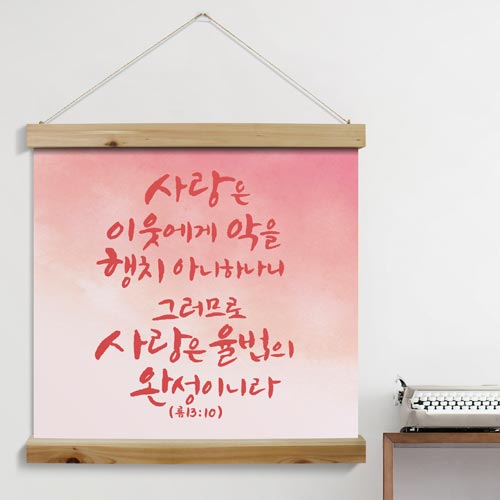 사랑은
이웃에게 악을
행치 아니하나니
그러므로
사랑은 율법의
완성이니라
(롬13:10)